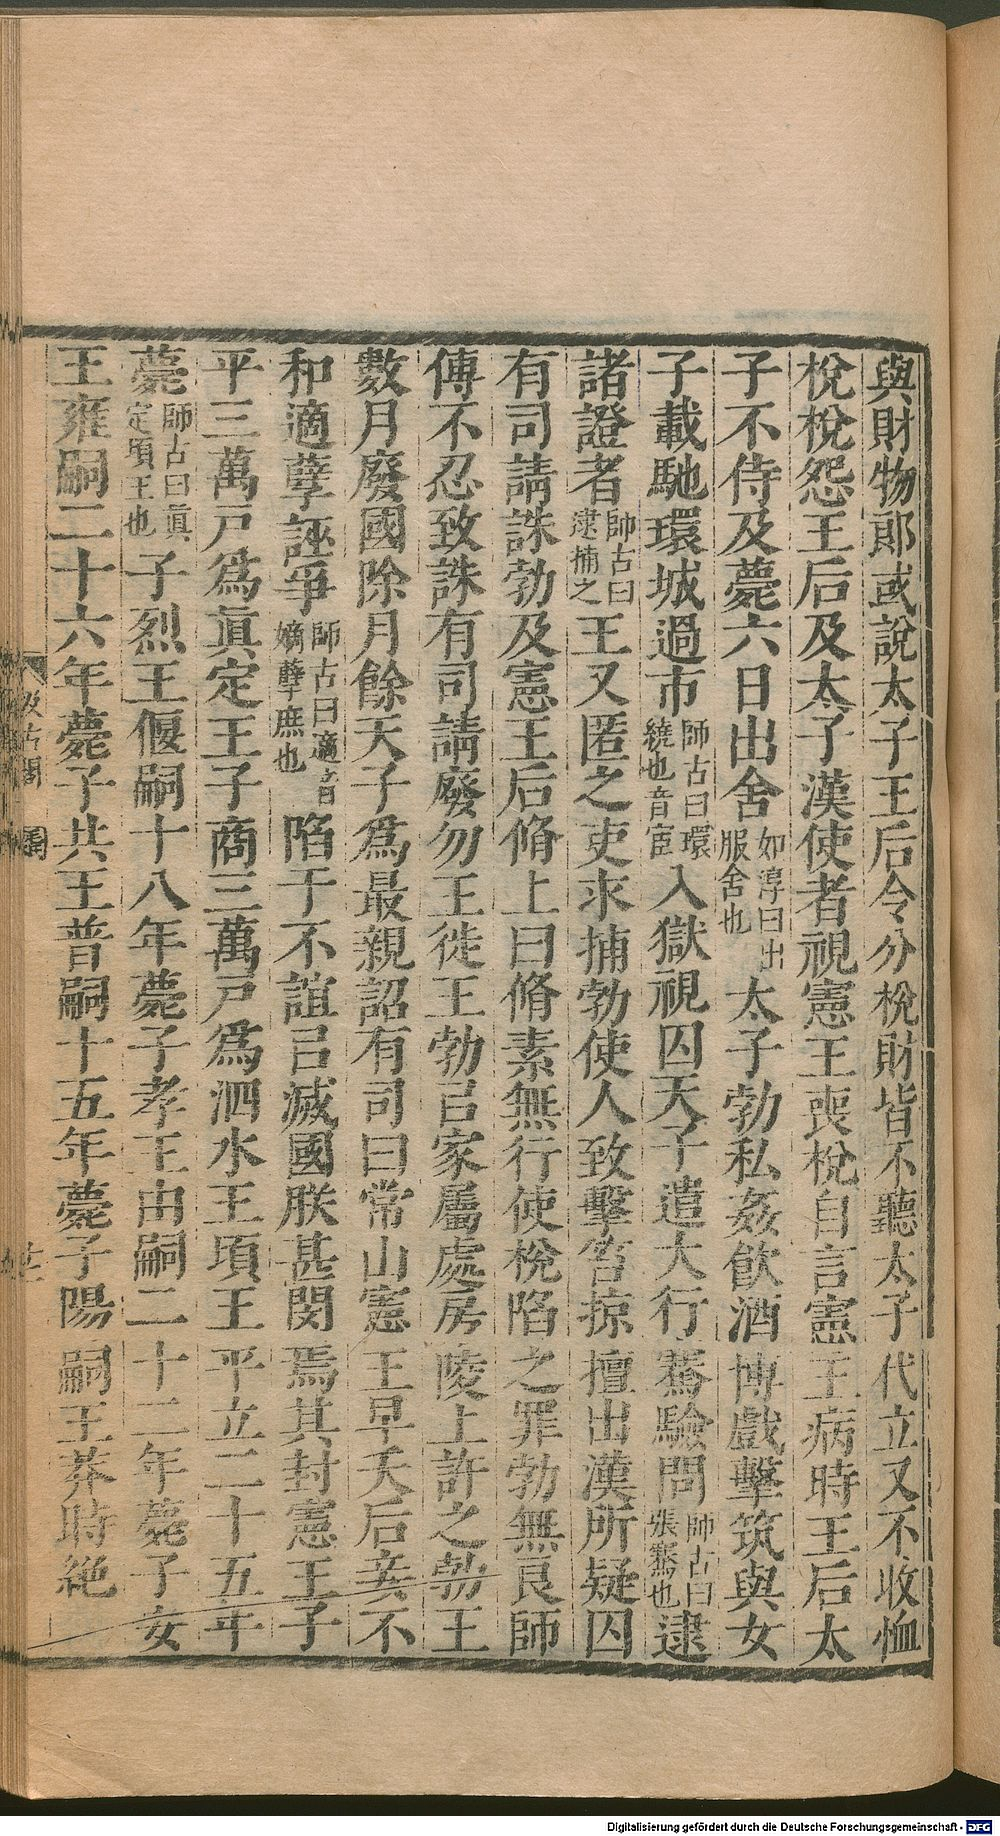 與財物郞或說太子王后令分梲財皆不聽太子代立又不收恤
梲梲怨王后及太子漢使者視憲王喪梲自言憲王病時王后太
子不侍及薨六日出舍如淳曰出服舍也太子勃私姦飮酒博戲擊筑與女
子載馳環城過市師古曰環繞也音宦入獄視囚天子遣大行騫驗問師古曰張騫也逮
諸證者師古曰逮捕之王又匿之吏求捕勃使人致擊笞掠擅出漢所疑囚
有司請誅勃及憲王后脩上曰脩素無行使梲陷之罪勃無良師
傅不忍致誅有司請廢勿王徙王勃㠯家屬處房陵上許之勃王
數月廢國除月餘天子爲最親詔有司曰常山憲王早夭后妾不
和適孽誣爭師古曰適音嫡孽庶也陷于不誼㠯滅國朕甚閔焉其封憲王子
平三萬戸爲眞定王子商三萬戸爲泗水王頃王平立二十五年
薨師古曰眞定頃王也子烈王偃嗣十八年薨子孝王由嗣二十二年薨子安
王雍嗣二十六年薨子共王普嗣十五年薨子陽嗣王莽時絶
汲古閣
Digitalisierung gefördert durch die Deutsche Forschungsgemeinschaft - DFG